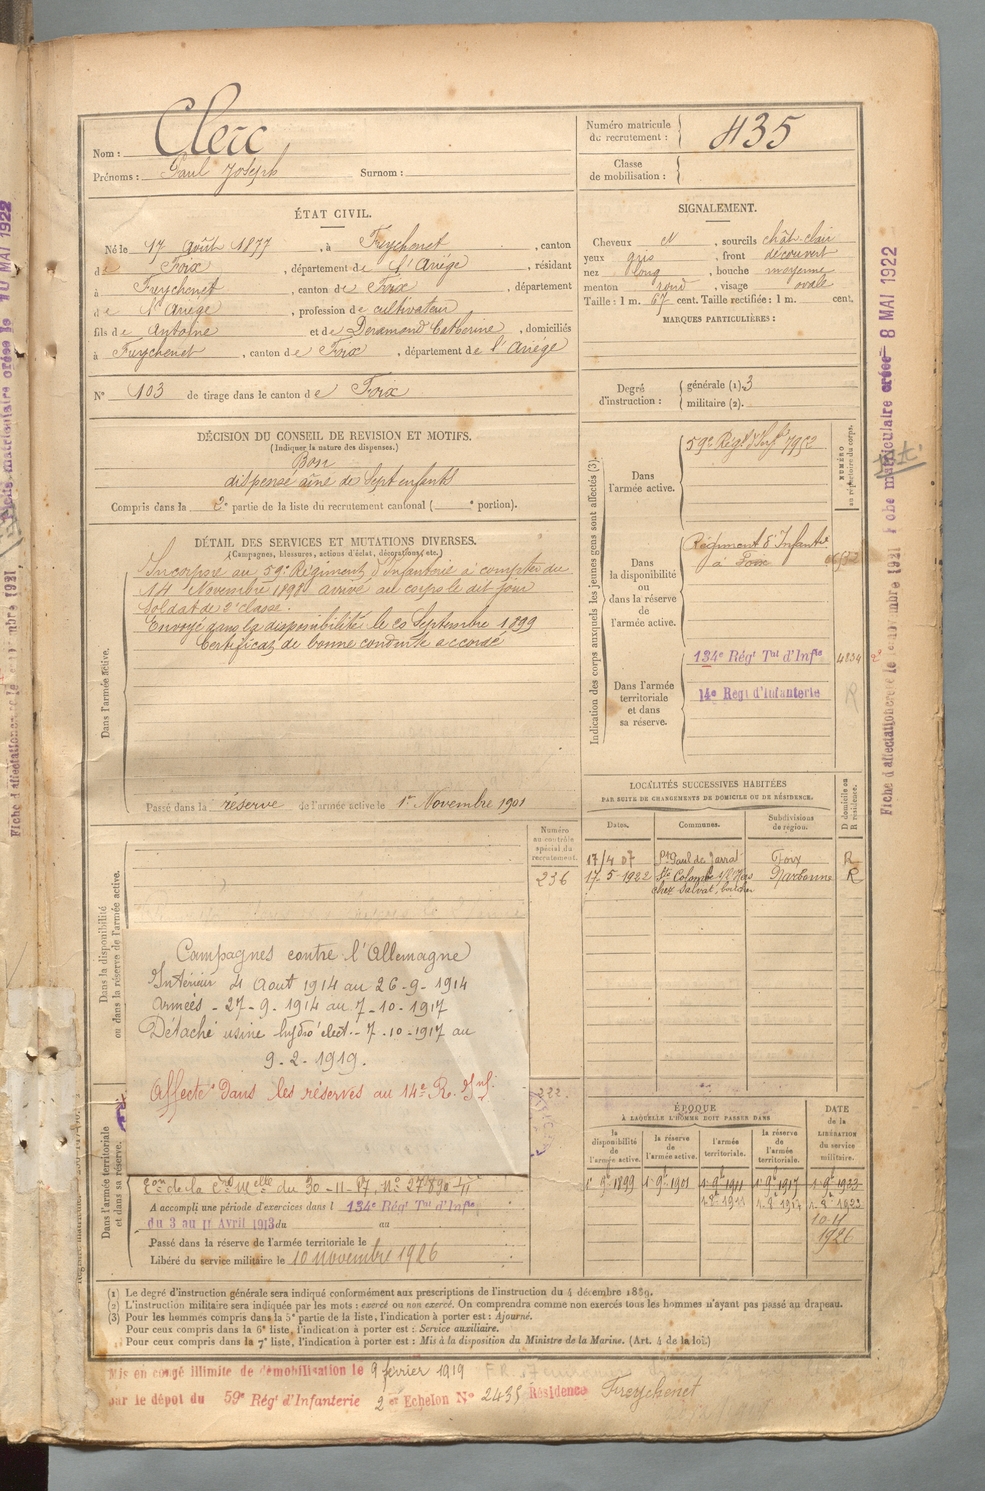 Nom : Clerc
Prénoms : Paul Joseph Surnom :
Numéro matricule du recrutement : 435
Classe de mobilisation :
ÉTAT CIVIL.
Né le 17 Août 1877, à Freychenet, canton
de Foix, département de l'Ariège, résidant
à Freychenet, canton de Foix, département
de l'Ariège, profession de cultivateur
fils de Antoine et de Deramond Catherine, domiciliés
à Freychenet, canton de Foix, département de l'Ariège
N° 103 de tirage dans le canton de Foix
SIGNALEMENT.
Cheveux , sourcils chât. clair
yeux gris, front découvert
nez long, bouche moyenne
menton rond, visage ovale
Taille : 1 m. 67 cent. Taille rectifiée : 1 m. cent.
MARQUES PARTICULIÈRES :
Degré d'instruction : générale (1). 3
militaire (2).
DÉCISION DU CONSEIL DE REVISION ET MOTIFS.
(Indiquer la nature des dispenses.)
Bon
dispensé aîné de sept enfants
Compris dans la 2e partie de la liste du recrutement cantonal ( e portion).
DÉTAIL DES SERVICES ET MUTATIONS DIVERSES.
(Campagnes, blessures, actions d'éclat, décorations, etc.)
Dans l'armée active.
Incorporé au 59e Régiment d'infanterie à compter du
14 Novembre 1898 arrivé au corps le dit jour
Soldat de 2e classe.
Envoyé dans la disponibilité le 20 Septembre 1899
Certificat de bonne conduite accordé
Passé dans la réserve de l'armée active le 1er Novembre 1901
Indication des corps auxquels les jeunes gens sont affectés (3).
NUMÉRO au répertoire du corps.
Dans l'armée active.
59e Régt d'Infie
Dans la disponibilité ou dans la réserve de l'armée active.
Régiment d'Infantie
à Foix
Dans l'armée territoriale et dans sa réserve.
134e Régt Tial d'Infie 4834
14e Régt d'Infanterie
R
LOCALITÉS SUCCESSIVES HABITÉES
PAR SUITE DE CHANGEMENTS DE DOMICILE OU DE RÉSIDENCE.
D domicile ou R résidence.
Dates. Communes. Subdivisions de région.
17/4 07 St Paul de Jarrat Foix R
17.5-1922 Ste Colombe s/l'Hers Narbonne R
chez Salvat,
Numéro au contrôle spécial du recrutement.
236
Dans la disponibilité ou dans la réserve de l'armée active.
Campagnes contre l'Allemagne
Intérieur 4 Aout 1914 au 26-9-1914
Armées - 27-9-1914 au 7-10-1917
Détaché usine hydro élect. - 7-10-1917 au
9-2-1919.
Affecté dans les réserves au 14e R. Inf.
Dans l'armée territoriale et dans sa réserve.
de la Cre Melle du 30-11-17, N°
A accompli une période d'exercices dans l 134e Régt Tial d'Infie
du 3 au 11 Avril 1913 du au
Passé dans la réserve de l'armée territoriale le
Libéré du service militaire le 10 novembre 1926
ÉPOQUE
À LAQUELLE L'HOMME DOIT PASSER DANS
la disponibilité de l'armée active. la réserve de l'armée active. l'armée territoriale. la réserve de l'armée territoriale. DATE de la LIBÉRATION du service militaire.
1er 9bre 1899 1er 9bre 1901 1er 9bre 1911 1er 9bre 1917 1er 9bre 1923
10-11
1926
(1) Le degré d'instruction générale sera indiqué conformément aux prescriptions de l'instruction du 4 décembre 1889.
(2) L'instruction militaire sera indiquée par les mots : exercé ou non exercé. On comprendra comme non exercés tous les hommes n'ayant pas passé au drapeau.
(3) Pour les hommes compris dans la 5e partie de la liste, l'indication à porter est : Ajourné.
Pour ceux compris dans la 6e liste, l'indication à porter est : Service auxiliaire.
Pour ceux compris dans la 7e liste, l'indication à porter est : Mis à la disposition du Ministre de la Marine. (Art. 4 de la loi.)
Mis en congé illimité de démobilisation le 9 février 1919
par le dépot du 59e Régt d'Infanterie 2e Echelon N° 2435 Résidence Freychenet
Fiche matriculaire créée 8 MAI 1922